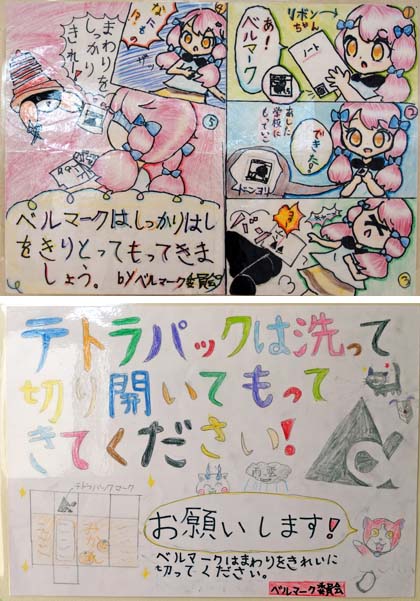 ①
リボン
ちゃん
ノート
あ!
ベルマーク
②
できた?
あした
学校に
もってい
ドンヨリ
③
④
なに
まわりを
しっかり
きれ!
⑤
ベルマークはしっかりはし
をきりとってもってきま
しょう。byベルマーク委員会
テトラパックは洗って
切り開いてもって
きてください!
テトラパックマーク
お願いします!
ベルマークはまわりをきれいに
切ってください。
ベルマーク委員会